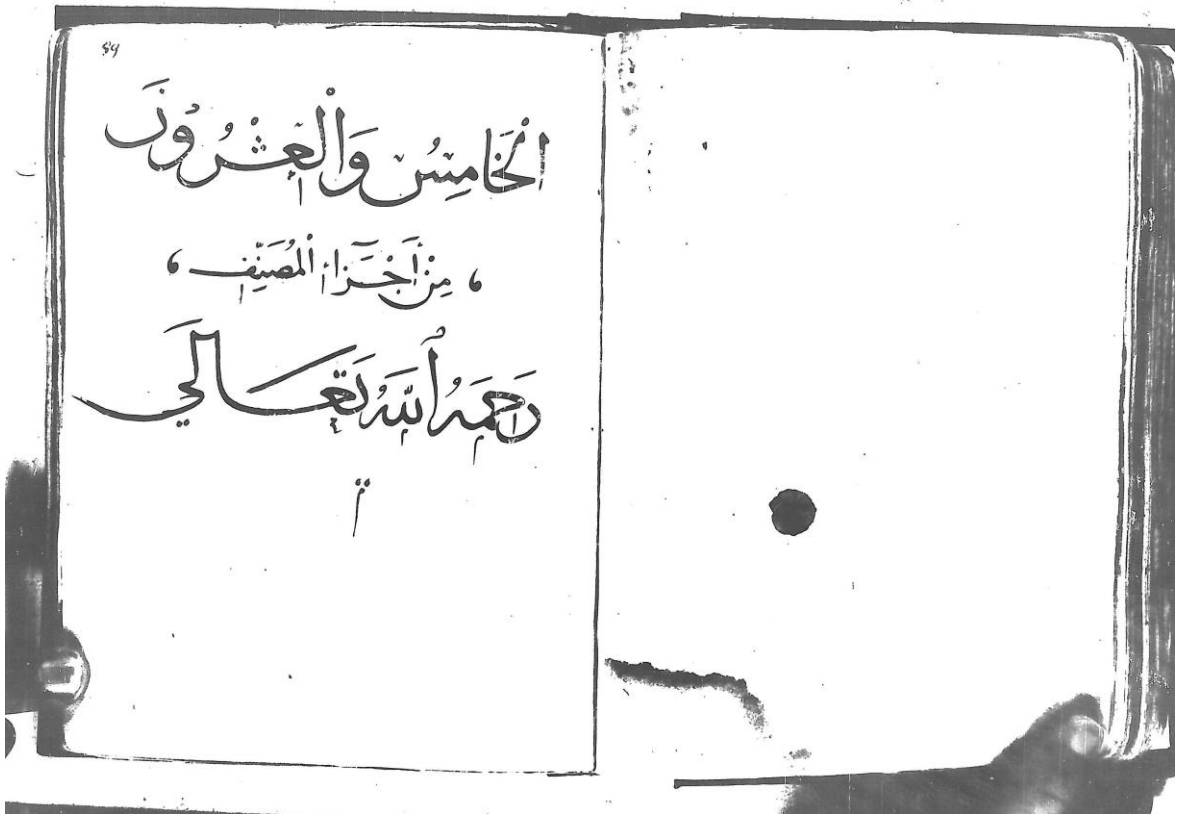 الْخَامِسُ وَالْعِشْرُونَ
مِنْ أَجْزَاءِ الْمُصَنِّفِ
رَحِمَهُ اللَّهُ تَعَالَى